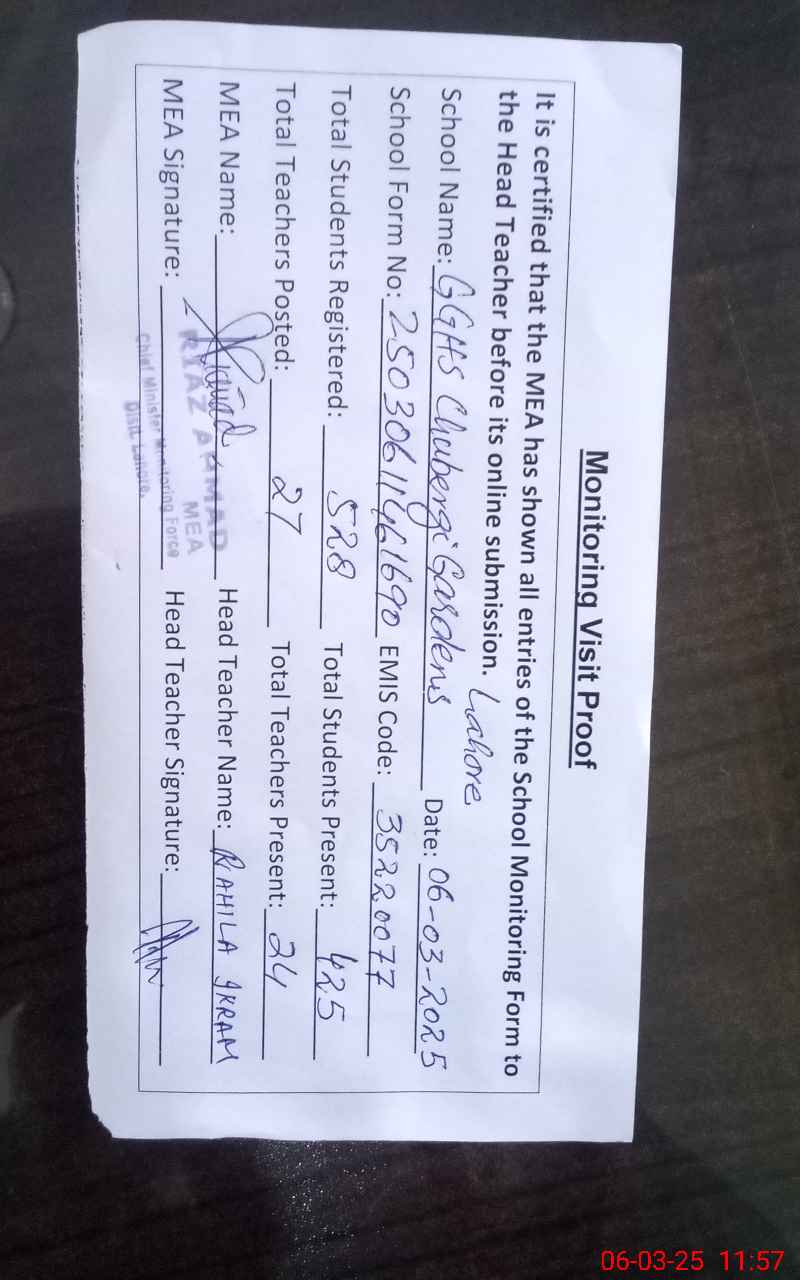 Monitoring Visit Proof
It is certified that the MEA has shown all entries of the School Monitoring Form to
the Head Teacher before its online submission. Lahore
School Name: GGHS Chubergi Gardens Date: 06-03-2025
School Form No: 2503061146 1690 EMIS Code: 35220077
Total Students Registered: 528 Total Students Present: 425
Total Teachers Posted: 27 Total Teachers Present: 24
MEA Name: Head Teacher Name: RAHILA IKRAM
RIAZ AHMAD
MEA
MEA Signature: Head Teacher Signature:
Chief Minister Monitoring Force
Distt. Lahore.
06-03-25 11:57